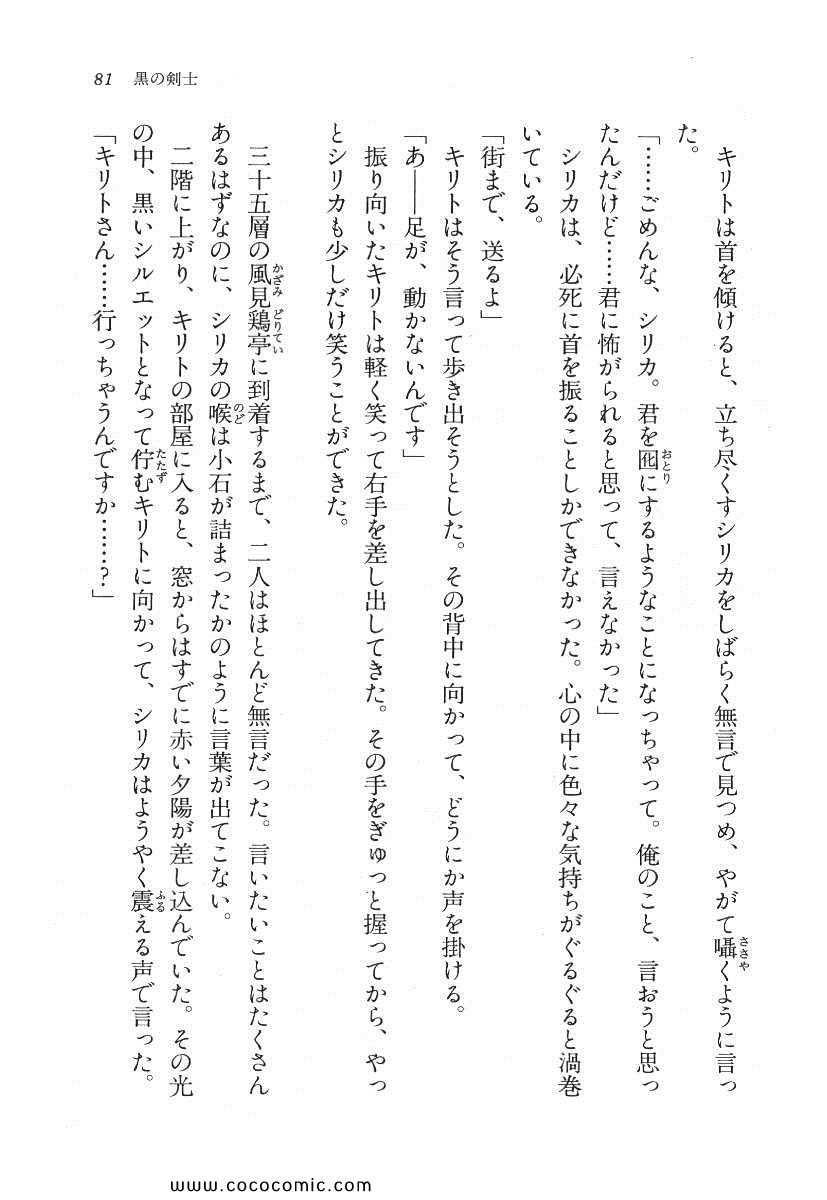 81 黒の剣士
キリトは首を傾けると、立ち尽くすシリカをしばらく無言で見つめ、やがて囁くように言っ
た。
「……ごめんな、シリカ。君を囮にするようなことになっちゃって。俺のこと、言おうと思っ
たんだけど……君に怖がられると思って、言えなかった」
シリカは、必死に首を振ることしかできなかった。心の中に色々な気持ちがぐるぐると渦巻
いている。
「街まで、送るよ」
キリトはそう言って歩き出そうとした。その背中に向かって、どうにか声を掛ける。
「あ――足が、動かないんです」
振り向いたキリトは軽く笑って右手を差し出してきた。その手をぎゅっと握ってから、やっ
とシリカも少しだけ笑うことができた。
三十五層の風見鶏亭に到着するまで、二人はほとんど無言だった。言いたいことはたくさん
あるはずなのに、シリカの喉は小石が詰まったかのように言葉が出てこない。
二階に上がり、キリトの部屋に入ると、窓からはすでに赤い夕陽が差し込んでいた。その光
の中、黒いシルエットとなって佇むキリトに向かって、シリカはようやく震える声で言った。
「キリトさん……行っちゃうんですか……?」
ささや
おとり
かざみ どりてい
のど
たたず
ふる
www.cococomic.com